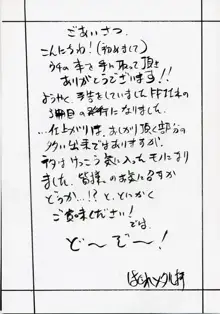 ごあいさつ
こんにちわ!(初めまして)
ウチの本を手に取って頂き
ありがとうございます!!
ようやく、予告をしていました
3冊目の発行になりました。
…仕上がりは、おしかり頂く部分の
多い出来ではありますが、
ネタはけっこう気に入ったモノになり
ました。皆様のお気に召すか
どうか…!?と、とにかく
ご賞味ください!
では、
ど〜ぞ〜!
はぐれメタル